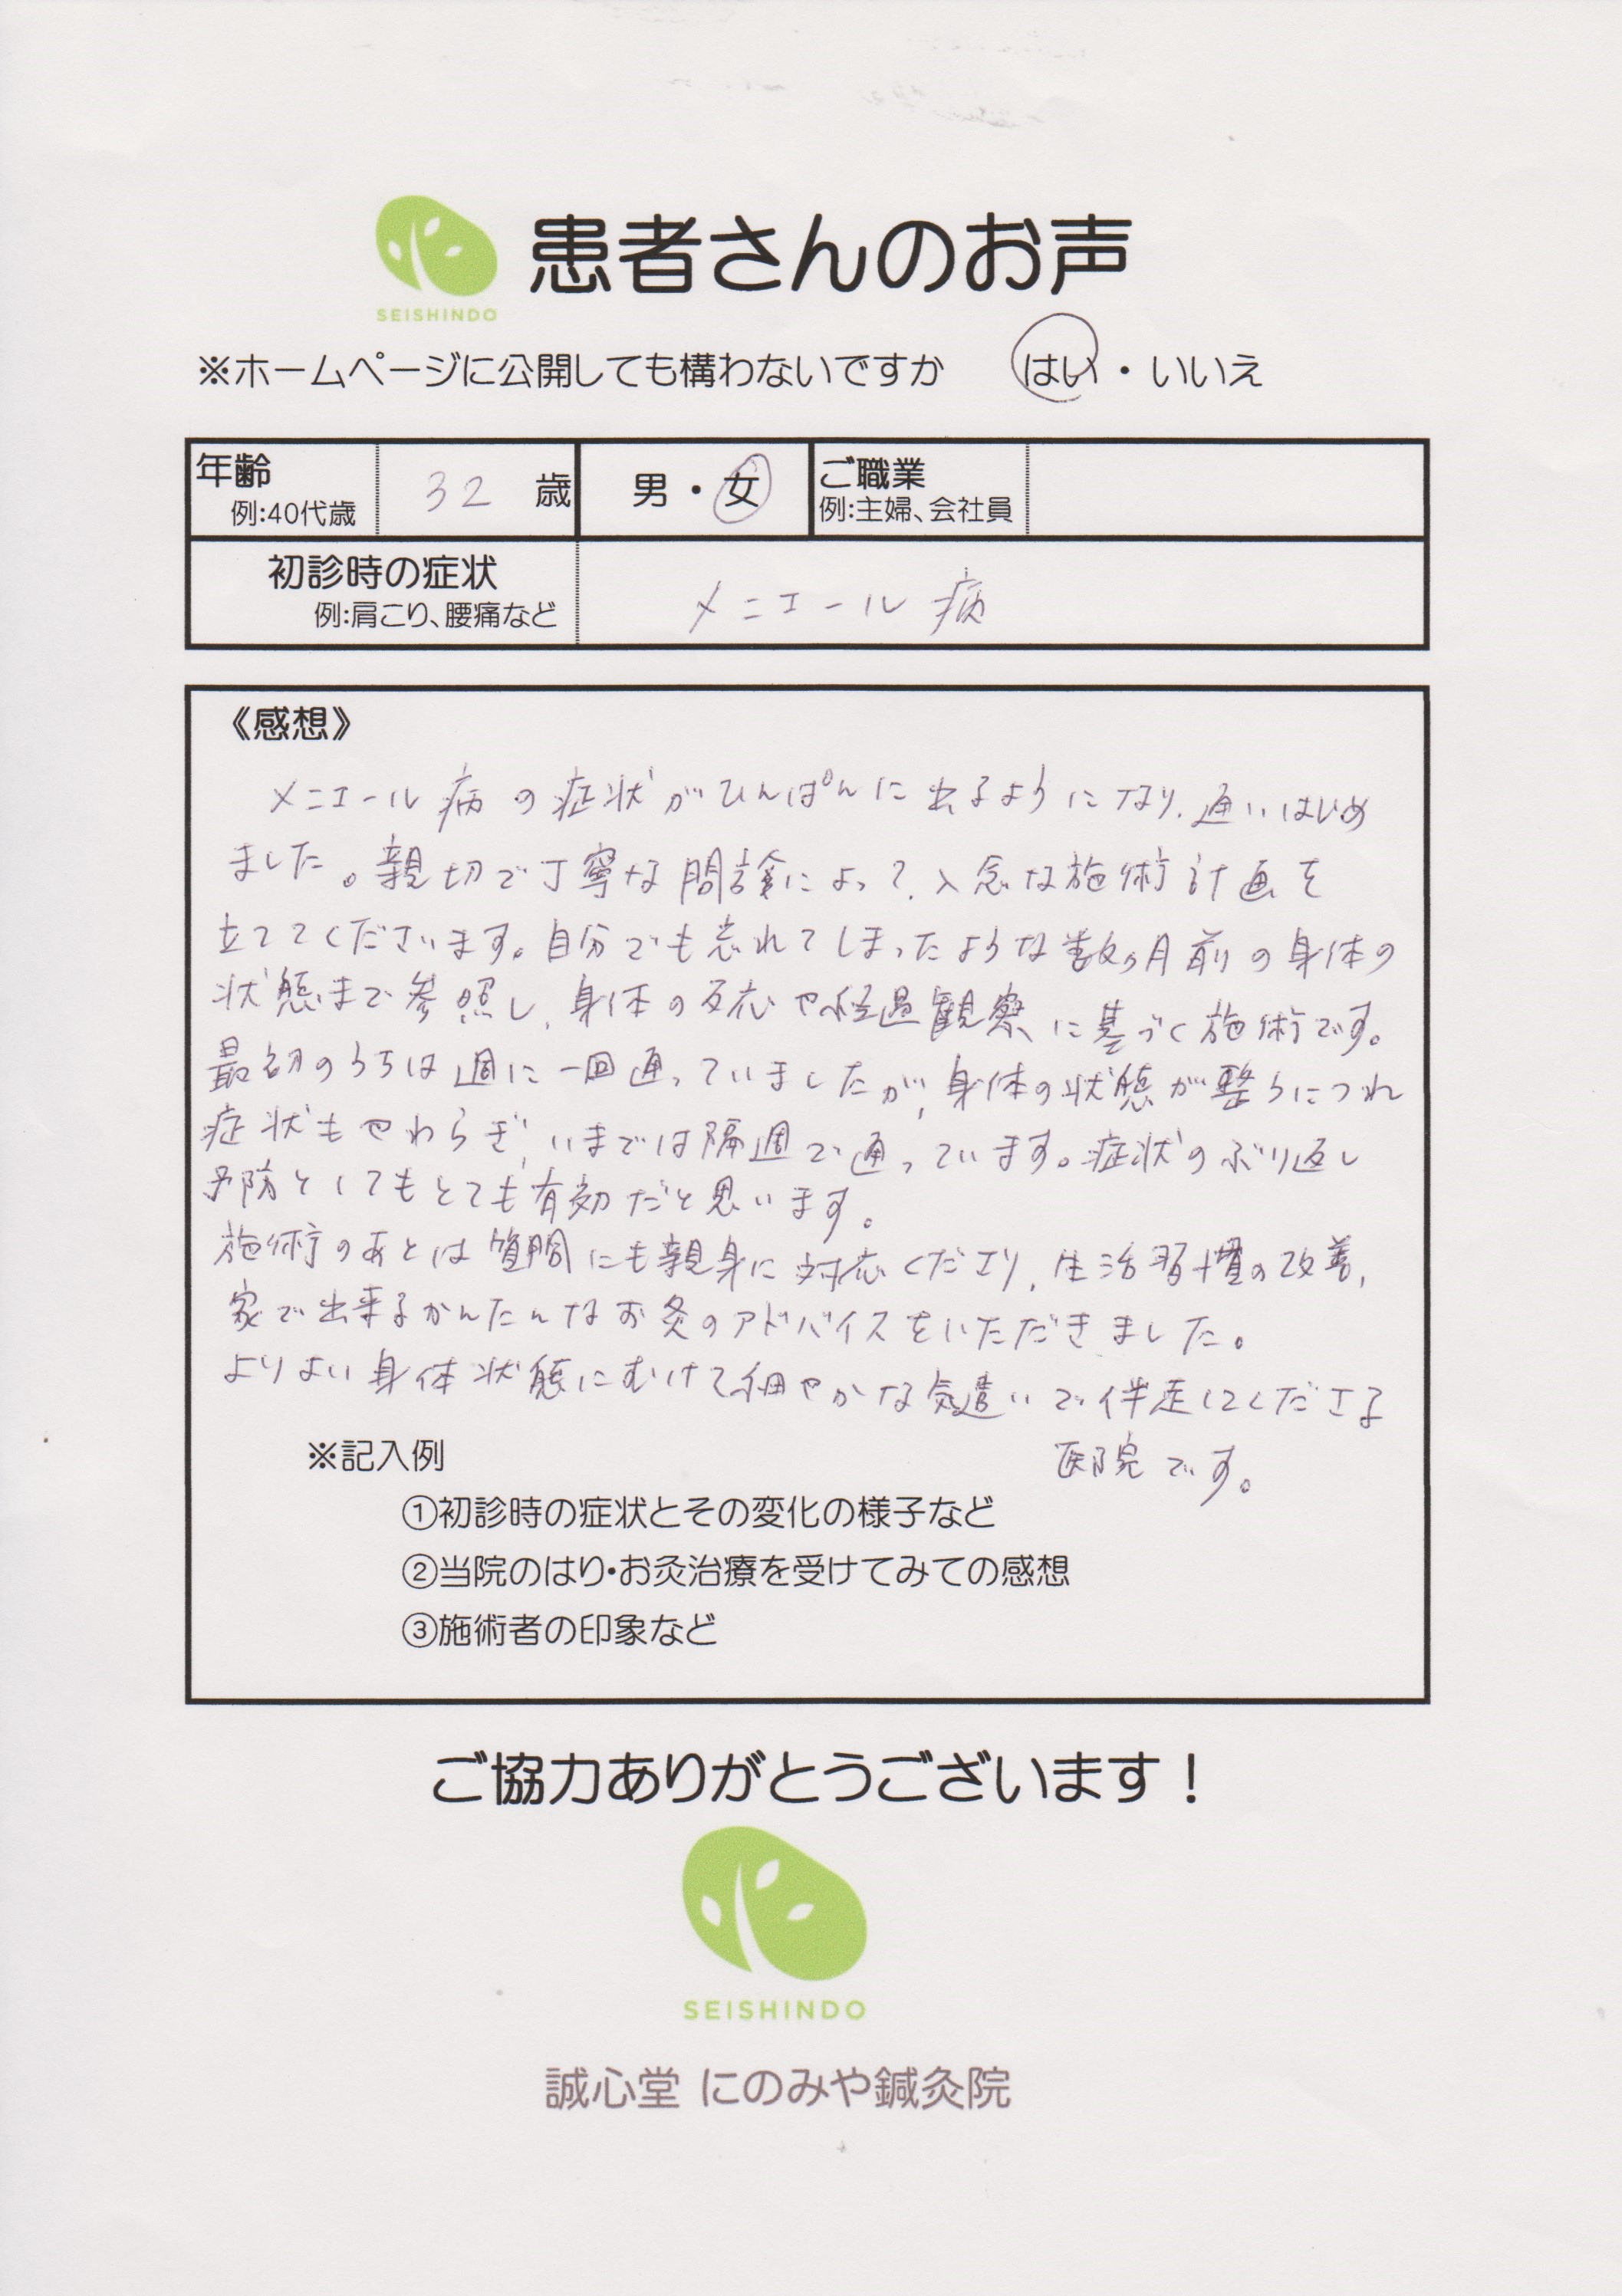 患者さんのお声
SEISHINDO
※ホームページに公開しても構わないですか　はい・いいえ
年齢 32 歳 男・女 ご職業
例:40代歳 例:主婦、会社員
初診時の症状 メニエール病
例:肩こり、腰痛など
《感想》
メニエール病の症状がひんぱんに出るようになり、通いはじめ
ました。親切で丁寧な問診によって、入念な施術計画を
立ててくださいます。自分でも忘れてしまったような数ヶ月前の身体の
状態まで参照し、身体の反応や経過観察に基づく施術です。
最初のうちは週に一回通っていましたが、身体の状態が整うにつれ
症状もやわらぎ、いまでは隔週で通っています。症状のぶり返し
予防としてもとても有効だと思います。
施術のあとは質問にも親身に対応くださり、生活習慣の改善、
家で出来るかんたんなお灸のアドバイスをいただきました。
よりよい身体状態にむけて細やかな気遣いで伴走してくださる
医院です。
※記入例
①初診時の症状とその変化の様子など
②当院のはり・お灸治療を受けてみての感想
③施術者の印象など
ご協力ありがとうございます！
SEISHINDO
誠心堂 にのみや鍼灸院